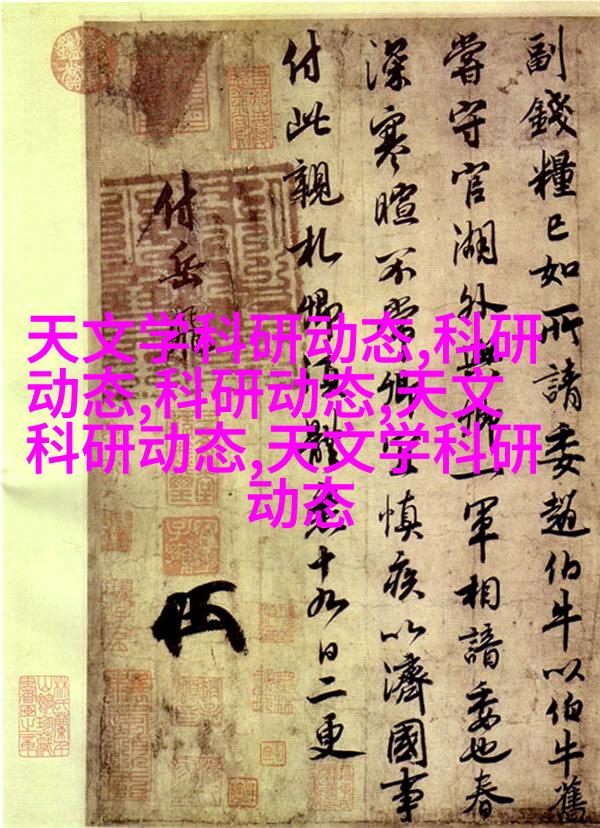 天文学科研动态,科研
动态,科研动态,天文
科研动态,天文学科研
动态
副錢糧已如所請委趙伯牛以伯牛舊
嘗守官湖外與卿一軍相諳委也春
深寒暄不常卿宜慎疾以濟國事
付此親札卿須體悉十九日二更
付岳飛